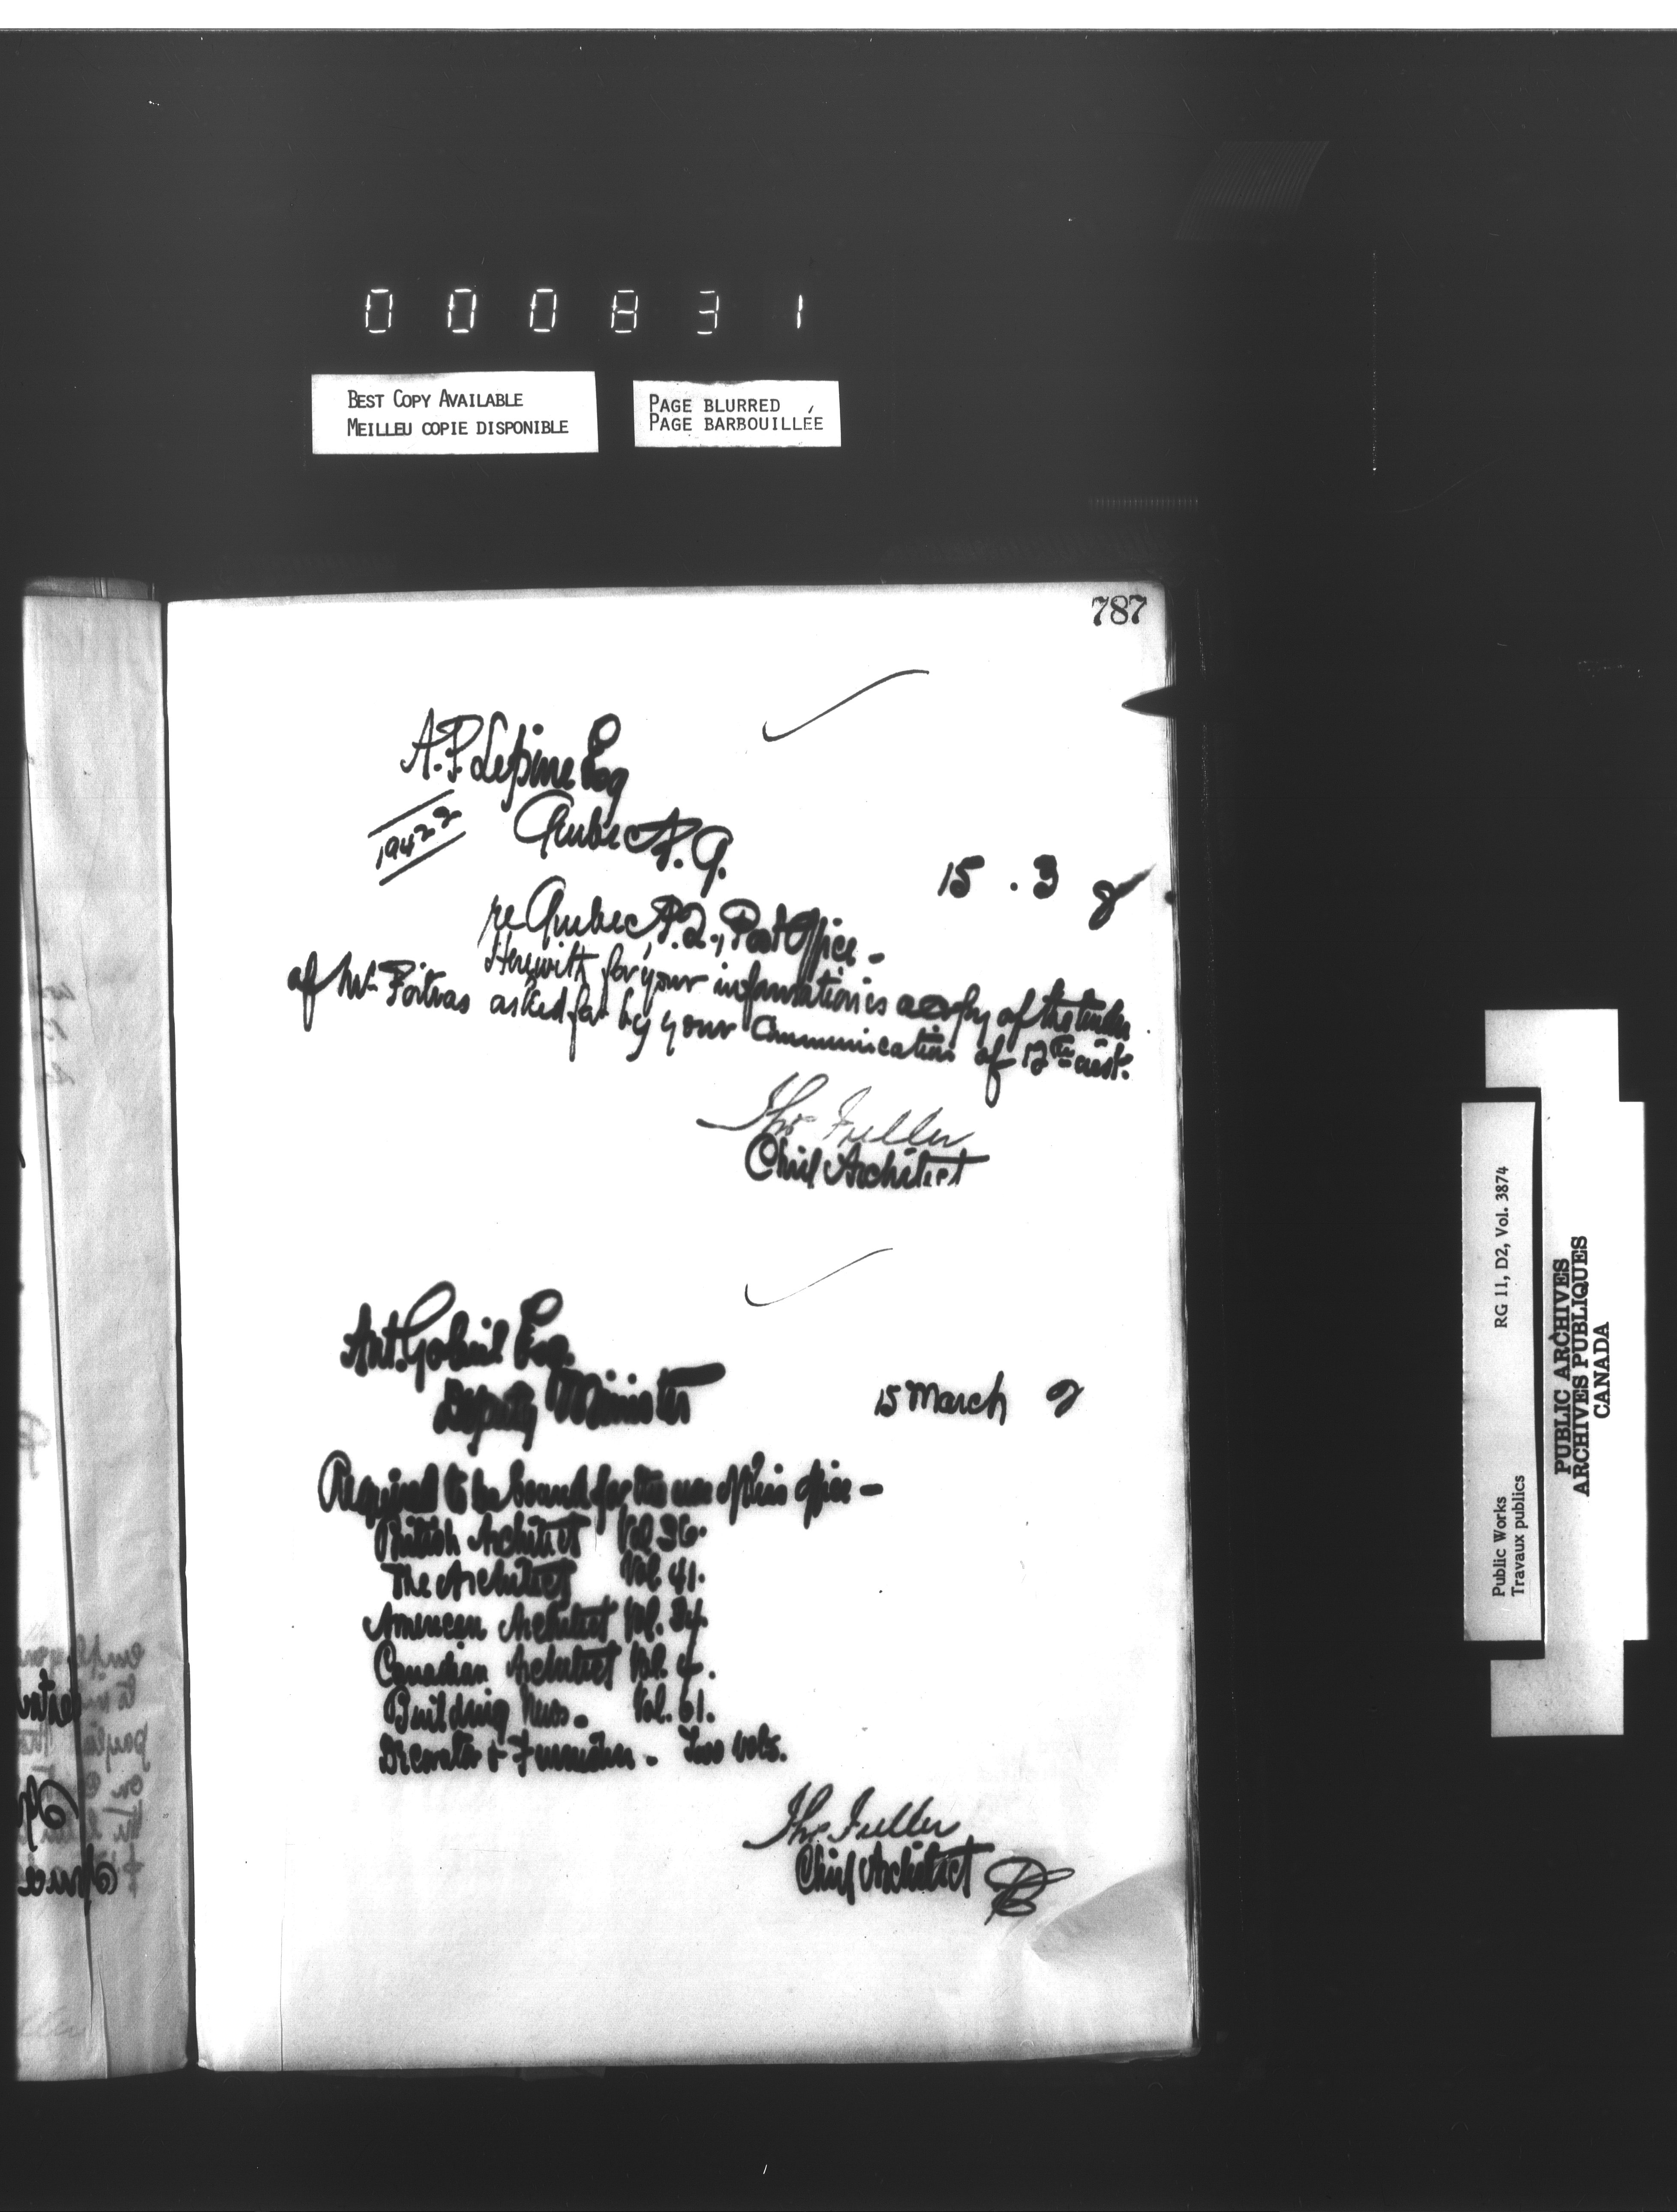 000831
BEST COPY AVAILABLE
MEILLEU COPIE DISPONIBLE
PAGE BLURRED
PAGE BARBOUILLÉE
787
A. P. Lepine Esq
Quebec P.Q.
19422
15 . 3 2
re Quebec P.Q., Post Office -
Herewith for your information is a copy of the tender
of Mr. asked for by your Communication of 12th inst.
Thos Fuller
Chief Architect
Ant. Gobeil Esq.
Deputy Minister
15 March 2
Required to be bound for the use of this office -
British Architect Vol 36.
The Architect Vol. 41.
American Architect Vol. 34.
Canadian Architect Vol. 4.
Building News. Vol. 61.
Decorator & Furnisher - Two Vols.
Thos Fuller
Chief Architect
Public Works
Travaux publics
RG 11, D2, Vol. 3874
PUBLIC ARCHIVES
ARCHIVES PUBLIQUES
CANADA